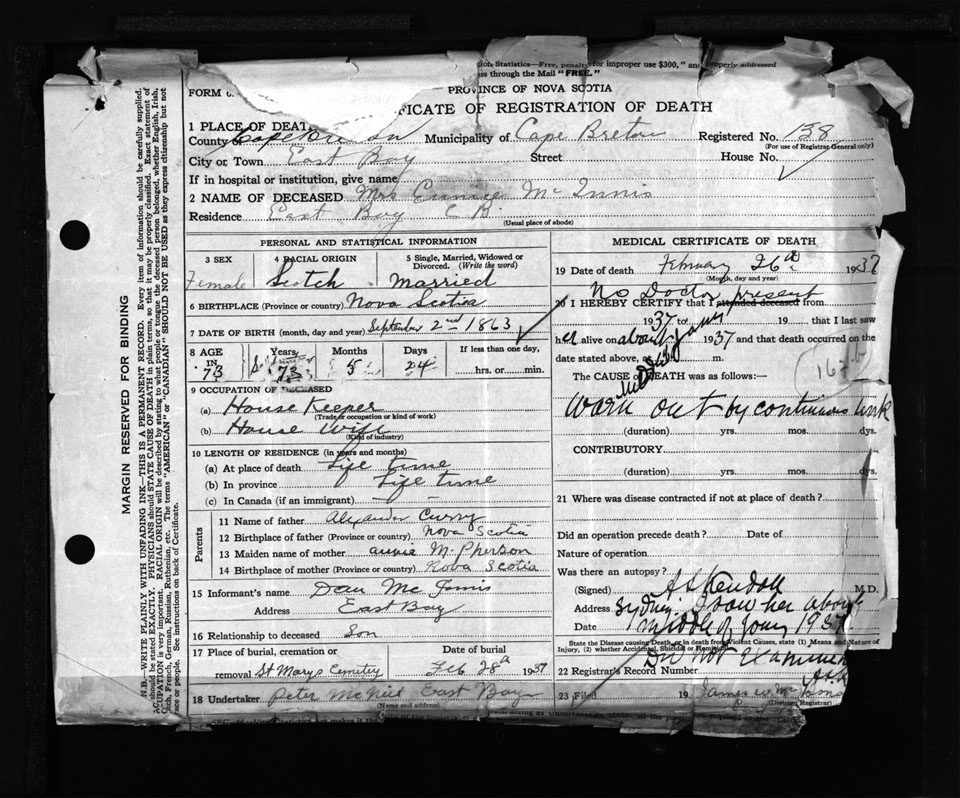 on Statistics—Free, penalty for improper use $300," and properly addressed
us through the Mail "FREE."
FORM
PROVINCE OF NOVA SCOTIA
FICATE OF REGISTRATION OF DEATH
1 PLACE OF DEATH
County Cape Breton Municipality of Cape Breton Registered No. 158
(For use of Registrar General only)
City or Town East Bay Street House No.
If in hospital or institution, give name
2 NAME OF DECEASED Mrs Eunice McInnis
Residence East Bay C B.
(Usual place of abode)
PERSONAL AND STATISTICAL INFORMATION
3 SEX 4 RACIAL ORIGIN 5 Single, Married, Widowed or Divorced. (Write the word)
Female Scotch Married
6 BIRTHPLACE (Province or country) Nova Scotia
7 DATE OF BIRTH (month, day and year) September 2nd 1863
8 AGE Years Months Days If less than one day,
IN 73 73 5 24 hrs. or min.
9 OCCUPATION OF DECEASED
(a) House Keeper
(Trade or occupation or kind of work)
(b) House wife
(Kind of industry)
10 LENGTH OF RESIDENCE (in years and months)
(a) At place of death Life time
(b) In province Life time
(c) In Canada (if an immigrant)
Parents
11 Name of father Alexander Curry
12 Birthplace of father (Province or country) Nova Scotia
13 Maiden name of mother Annie McPherson
14 Birthplace of mother (Province or country) Nova Scotia
15 Informant's name Dan McInnis
Address East Bay
16 Relationship to deceased Son
17 Place of burial, cremation or Date of burial
removal St Marys Cemetry Feb 28th 1937
18 Undertaker Peter McNeil East Bay
(Name and address)
MEDICAL CERTIFICATE OF DEATH
19 Date of death February 26th 1937
(Month, day and year)
No Doctor present
20 I HEREBY CERTIFY that I attended deceased from
1937 to 19 that I last saw
her alive on about 1937 and that death occurred on the
date stated above, at m.
The CAUSE of DEATH was as follows:—
162 b
Worn out by continuous work
(duration) yrs. mos. dys.
CONTRIBUTORY
(duration) yrs. mos. dys.
21 Where was disease contracted if not at place of death?
Did an operation precede death? Date of
Nature of operation
Was there an autopsy?
(Signed) A S Kendall M.D.
Address Sydney I saw her about
Date middle of Jany 1937
State the Disease causing Death, or in death from Violent Causes, state (1) Means and Nature of
Injury, (2) whether Accidental, Suicidal or Homicidal
Did not Examine
22 Registrar's Record Number ASK
23 Filed 19 James W
(Division Registrar)
MARGIN RESERVED FOR BINDING
N.B.—WRITE PLAINLY WITH UNFADING INK—THIS IS A PERMANENT RECORD. Every item of information should be carefully supplied.
AGE should be stated EXACTLY. PHYSICIANS should STATE CAUSE OF DEATH in plain terms, so that it may be properly classified. Exact statement of
OCCUPATION is very important. RACIAL ORIGIN will be described by stating to what people or tongue the deceased person belonged, whether English, Irish,
Scotch, French, German, Russian, Ruthenian, etc. The terms "AMERICAN" or "CANADIAN" SHOULD NOT BE USED as they express citizenship but not
race or people. See instructions on back of Certificate.